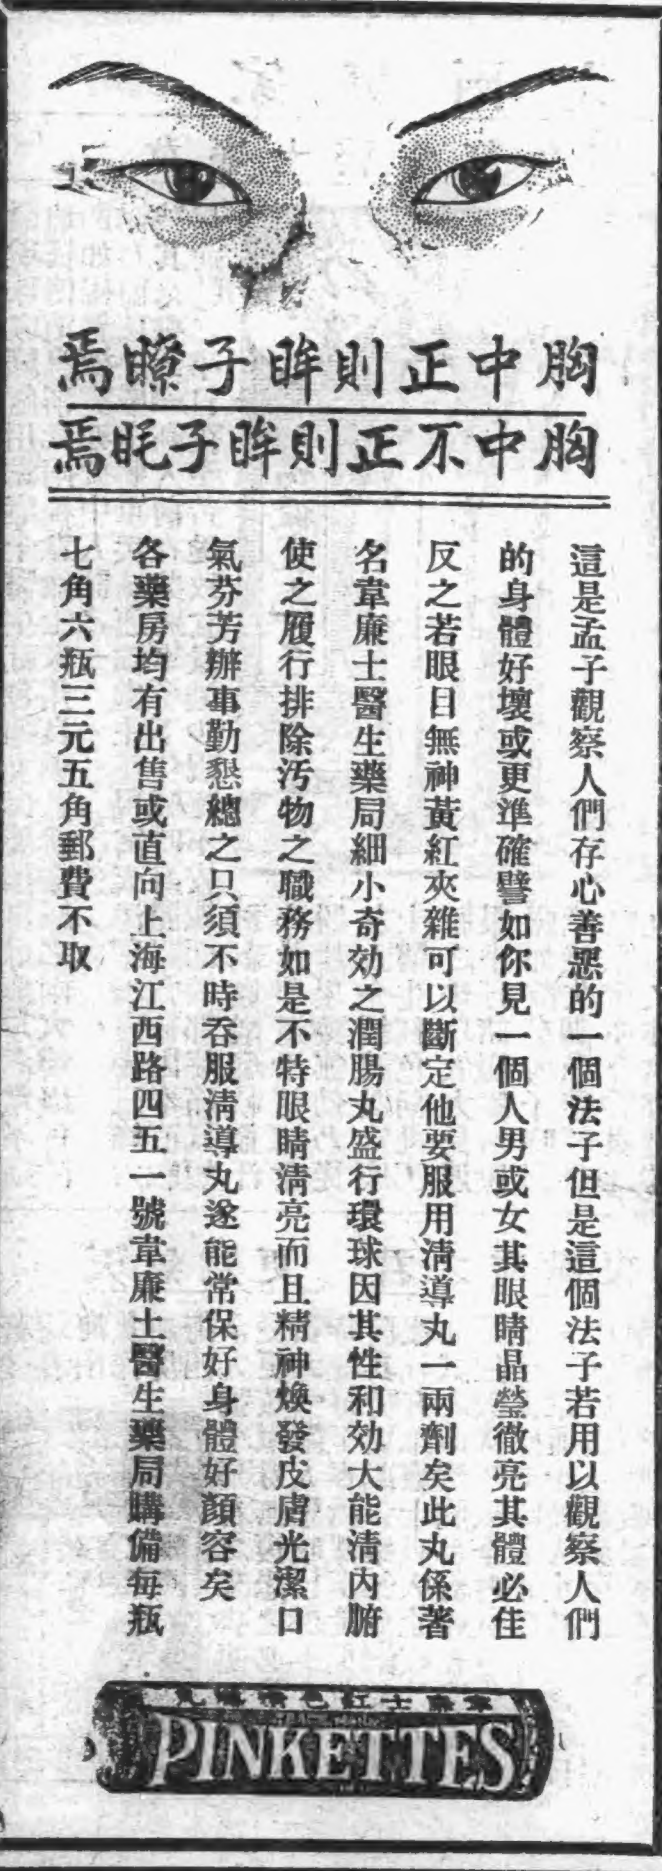 胸中正則眸子瞭焉
胸中不正則眸子眊焉
這是孟子觀察人們存心善惡的一個法子但是這個法子若用以觀察人們
的身體好壞或更準確譬如你見一個人男或女其眼睛晶瑩徹亮其體必佳
反之若眼目無神黃紅夾雜可以斷定他要服用清導丸一兩劑矣此丸係著
名韋廉士醫生藥局細小奇効之潤腸丸盛行環球因其性和効大能清內腑
使之履行排除汚物之職務如是不特眼睛清亮而且精神煥發皮膚光潔口
氣芬芳辦事勤懇總之只須不時吞服清導丸遂能常保好身體好顏容矣
各藥房均有出售或直向上海江西路四五一號韋廉士醫生藥局購備每瓶
七角六瓶三元五角郵費不取
韋廉士紅色清導丸
PINKETTES